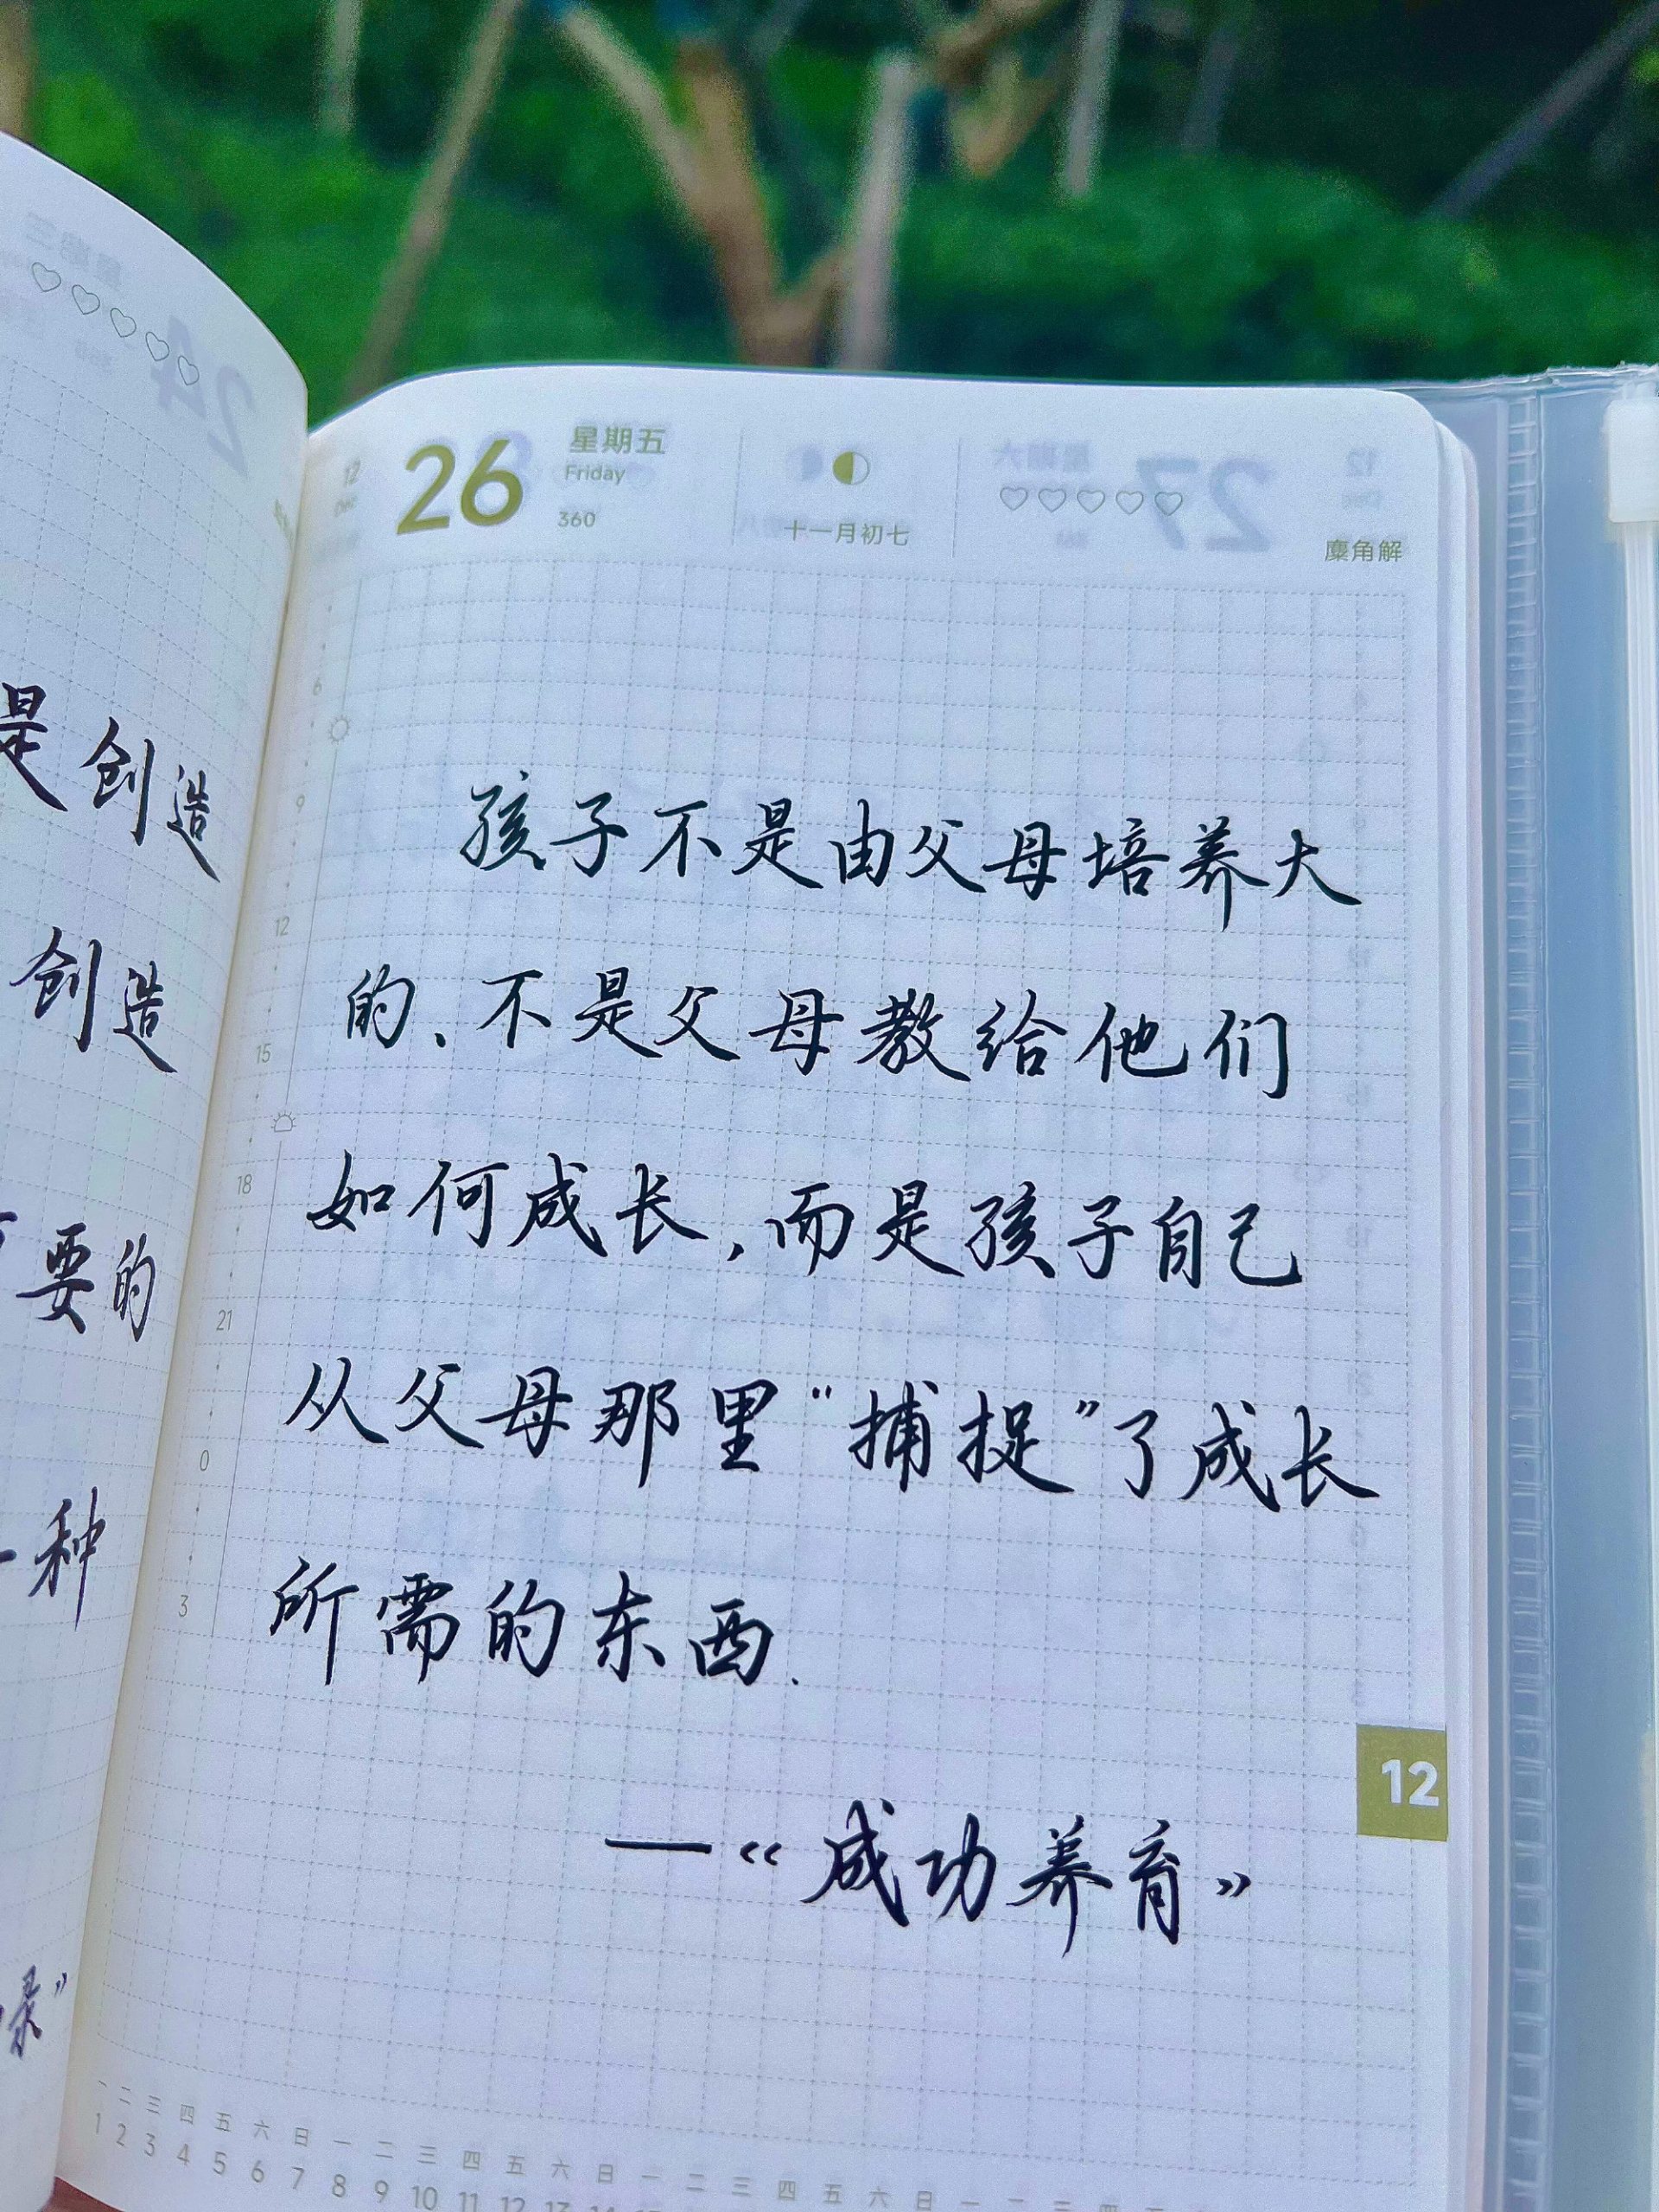 是创造
创造
要的
一种
录》
26
星期五
Friday
360
十一月初七
麋角解
6
9
12
15
18
21
0
3
孩子不是由父母培养大
的、不是父母教给他们
如何成长,而是孩子自己
从父母那里“捕捉”了成长
所需的东西.
—《成功养育》
12
一 二 三 四 五 六 日 一 二 三 四 五 六 日 一 二 三 四 五 六 日 一 二 三 四
1 2 3 4 5 6 7 8 9 10 11 12 13